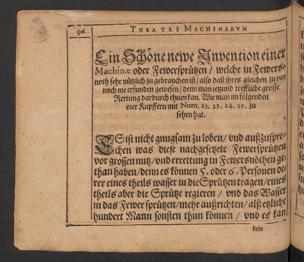 96. THEATRI MACHINARVM
Ein Schöne newe Invention einer
Machinæ oder Fewersprützen / welche in Fewers=
noth sehr nützlich zu gebrauchen ist / also daß ihres gleichen zu vor
noch nie erfunden gewesen / denn man jetzund treffliche grosse
Rettung dardurch thuen kan. Wie man im folgenden
vier Kupffern mit Num. 22. 23. 24. 25. zu
sehen hat.
ES ist nicht gnugsam zu loben / und außzuspre=
chen was diese nachgesetzte Fewersprützen
vor grossen nutz / und errettung in Fewersnöthen ge=
than haben / denn es können 5. oder 6. Personen de=
rer eines theils wasser in die Sprützen tragen / eines
theils aber die Sprütze regieren / und das Wasser
in das Fewer sprützen / mehr außrichten / als etzliche
hundert Mann sonsten thun können / und es kan
kein